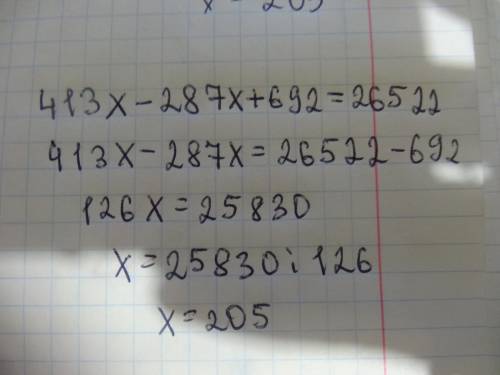 x = 205
413x-287x+692=26522
413x-287x=26522-692
126x=25830
x=25830:126
x=205